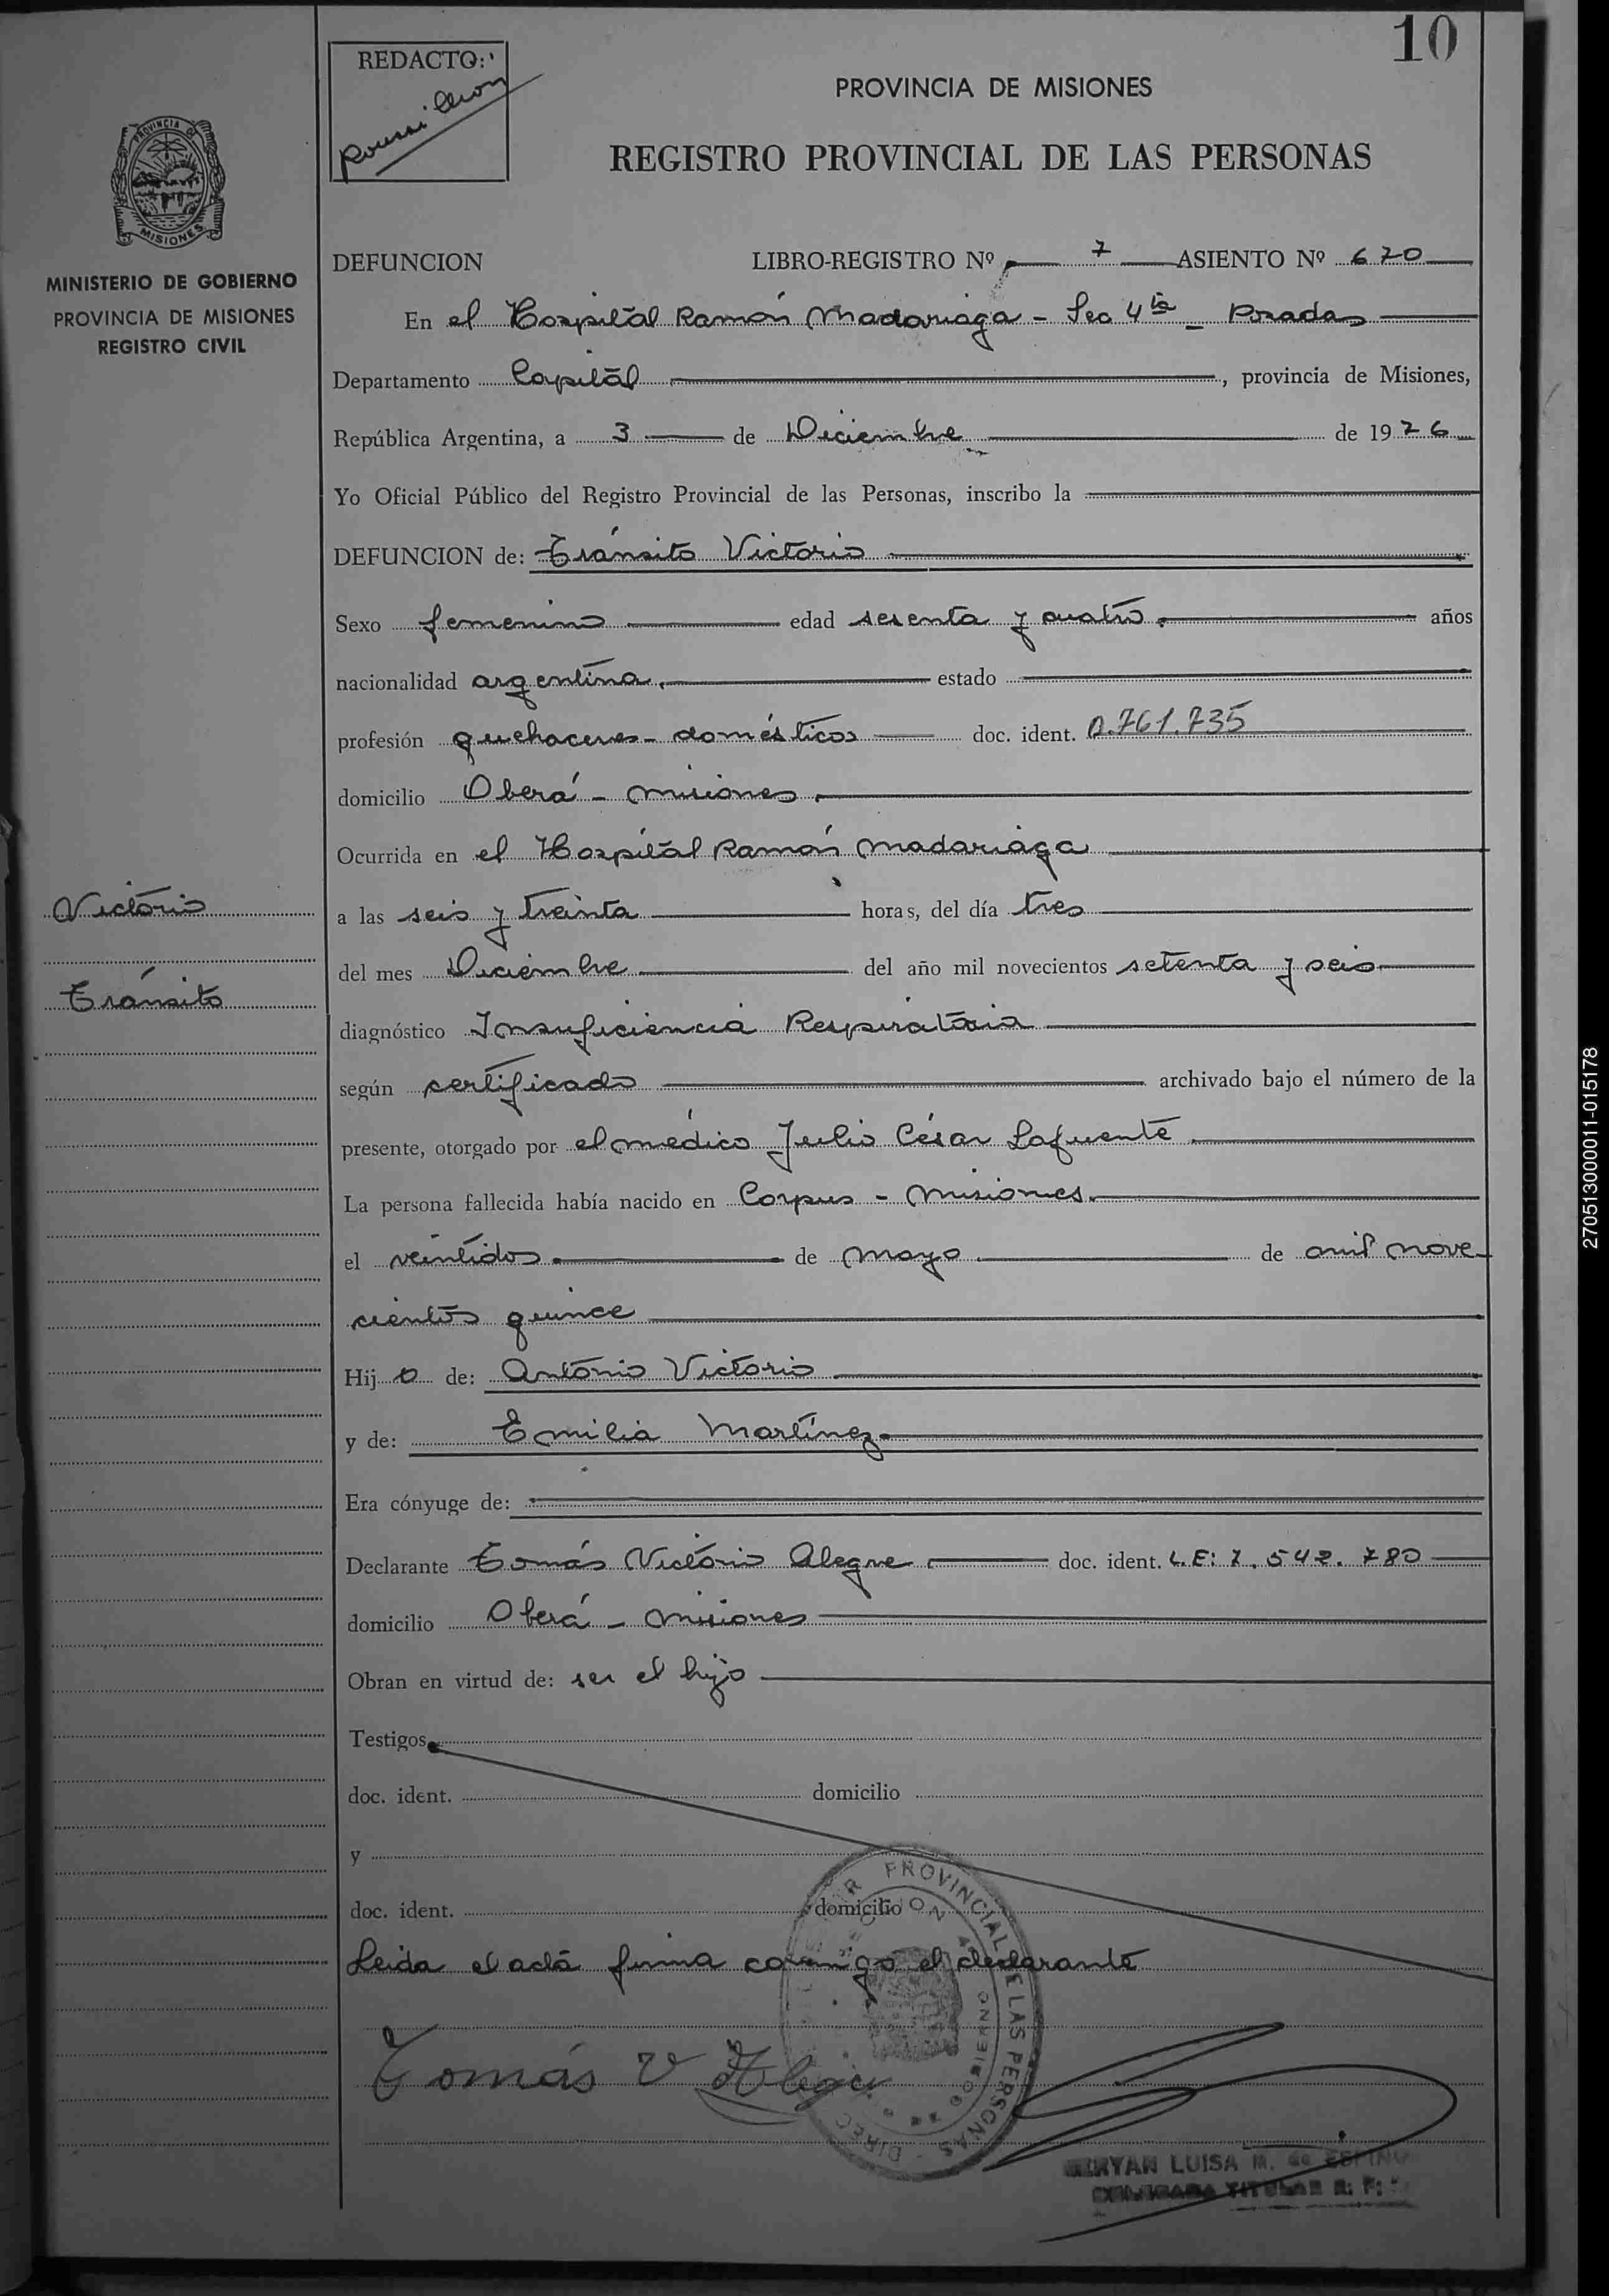 10
REDACTO:
PROVINCIA DE MISIONES
REGISTRO PROVINCIAL DE LAS PERSONAS
PROVINCIA DE
MISIONES
MINISTERIO DE GOBIERNO
PROVINCIA DE MISIONES
REGISTRO CIVIL
DEFUNCION LIBRO-REGISTRO Nº 7 ASIENTO Nº 670
En el Hospital Ramón Madariaga - Sec 4ta - Posadas
Departamento Capital, provincia de Misiones,
República Argentina, a 3 de Diciembre de 1976
Yo Oficial Público del Registro Provincial de las Personas, inscribo la
DEFUNCION de: Tránsito Victorio
Sexo femenino edad sesenta y cuatro. años
nacionalidad argentina. estado
profesión quehaceres - domésticos doc. ident. 0.761.735
domicilio Oberá - Misiones.
Ocurrida en el Hospital Ramón Madariaga
Victorio
a las seis y treinta horas, del día tres
del mes Diciembre del año mil novecientos setenta y seis
Tránsito
diagnóstico Insuficiencia Respiratoria
según certificado archivado bajo el número de la
presente, otorgado por el médico Julio César Lafuente.
La persona fallecida había nacido en Corpus - Misiones.
el veintidos de mayo de mil nove-
cientos quince
Hij o de: Antonio Victorio
y de: Emilia Martínez
Era cónyuge de:
Declarante Tomás Victorio Alegre doc. ident. L.E: 7.542.780
domicilio Oberá - Misiones
Obran en virtud de: ser el hijo
Testigos
doc. ident. domicilio
y
doc. ident. domicilio
Leida el acta firma conmigo el declarante
Tomás V Alegre
PROVINCIAL DE LAS PERSONAS
LUISA M. de
TITULAR R. P.
270513000011-015178